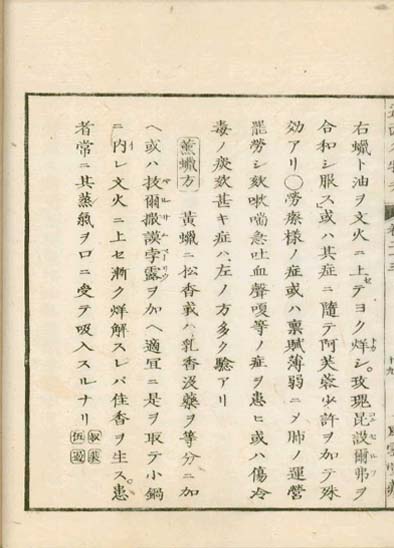 右蠟ト油ヲ文火ニ上セテヨク烊シ。玫瑰昆設爾弗ヲ
合和シ服ス」或ハ其症ニ隨テ阿芙蓉少許ヲ加テ殊
効アリ〇勞瘵様ノ症或ハ禀賦薄弱ニメ肺ノ運營
罷勞シ欬嗽喘急吐血聲嗄等ノ症ヲ患ヒ或ハ傷冷
毒ノ痰欬甚キ症ハ左ノ方多ク驗アリ
薫蠟方 黄蠟ニ松香或ハ乳香沒藥ヲ等分ニ加
ヘ或ハ抜爾撒謨孛露ヲ加ヘ適宜ニ是ヲ取テ小鍋
ニ内レ文火ニ上セ漸ク烊解スレバ佳香ヲ生ス。患
者常ニ其蒸氣ヲ口ニ受テ吸入スルナリ